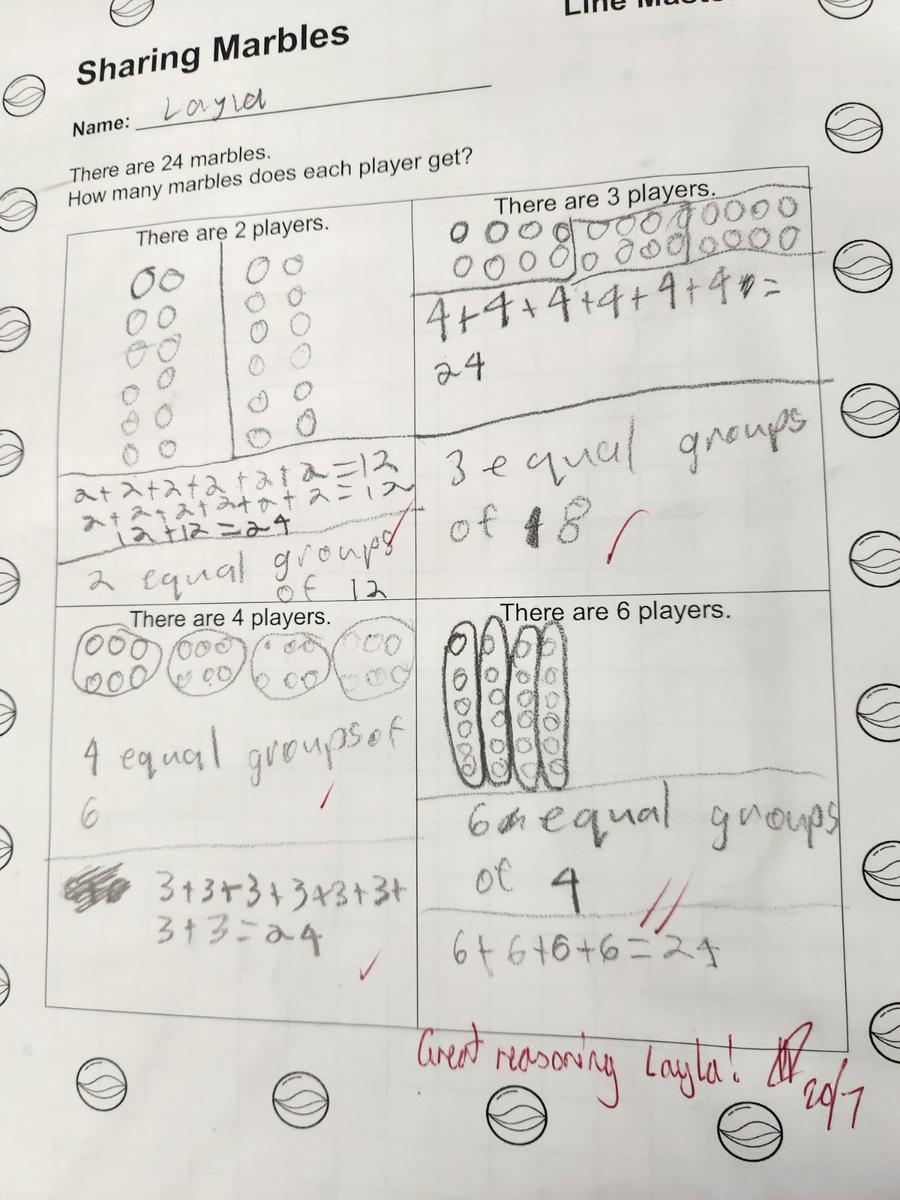 Line Mast
Sharing Marbles
Name: Layla
There are 24 marbles.
How many marbles does each player get?
There are 2 players.
2+2+2+2+2+2=12
2+2+2+2+2+2=12
12+12=24
2 equal groups
of 12
There are 3 players.
4+4+4+4+4+4=
24
3 equal groups
of 8
There are 4 players.
4 equal groups of
6
3+3+3+3+3+3+
3+3=24
There are 6 players.
6 equal groups
of 4
6+6+6+6=24
Great reasoning Layla!
20/7